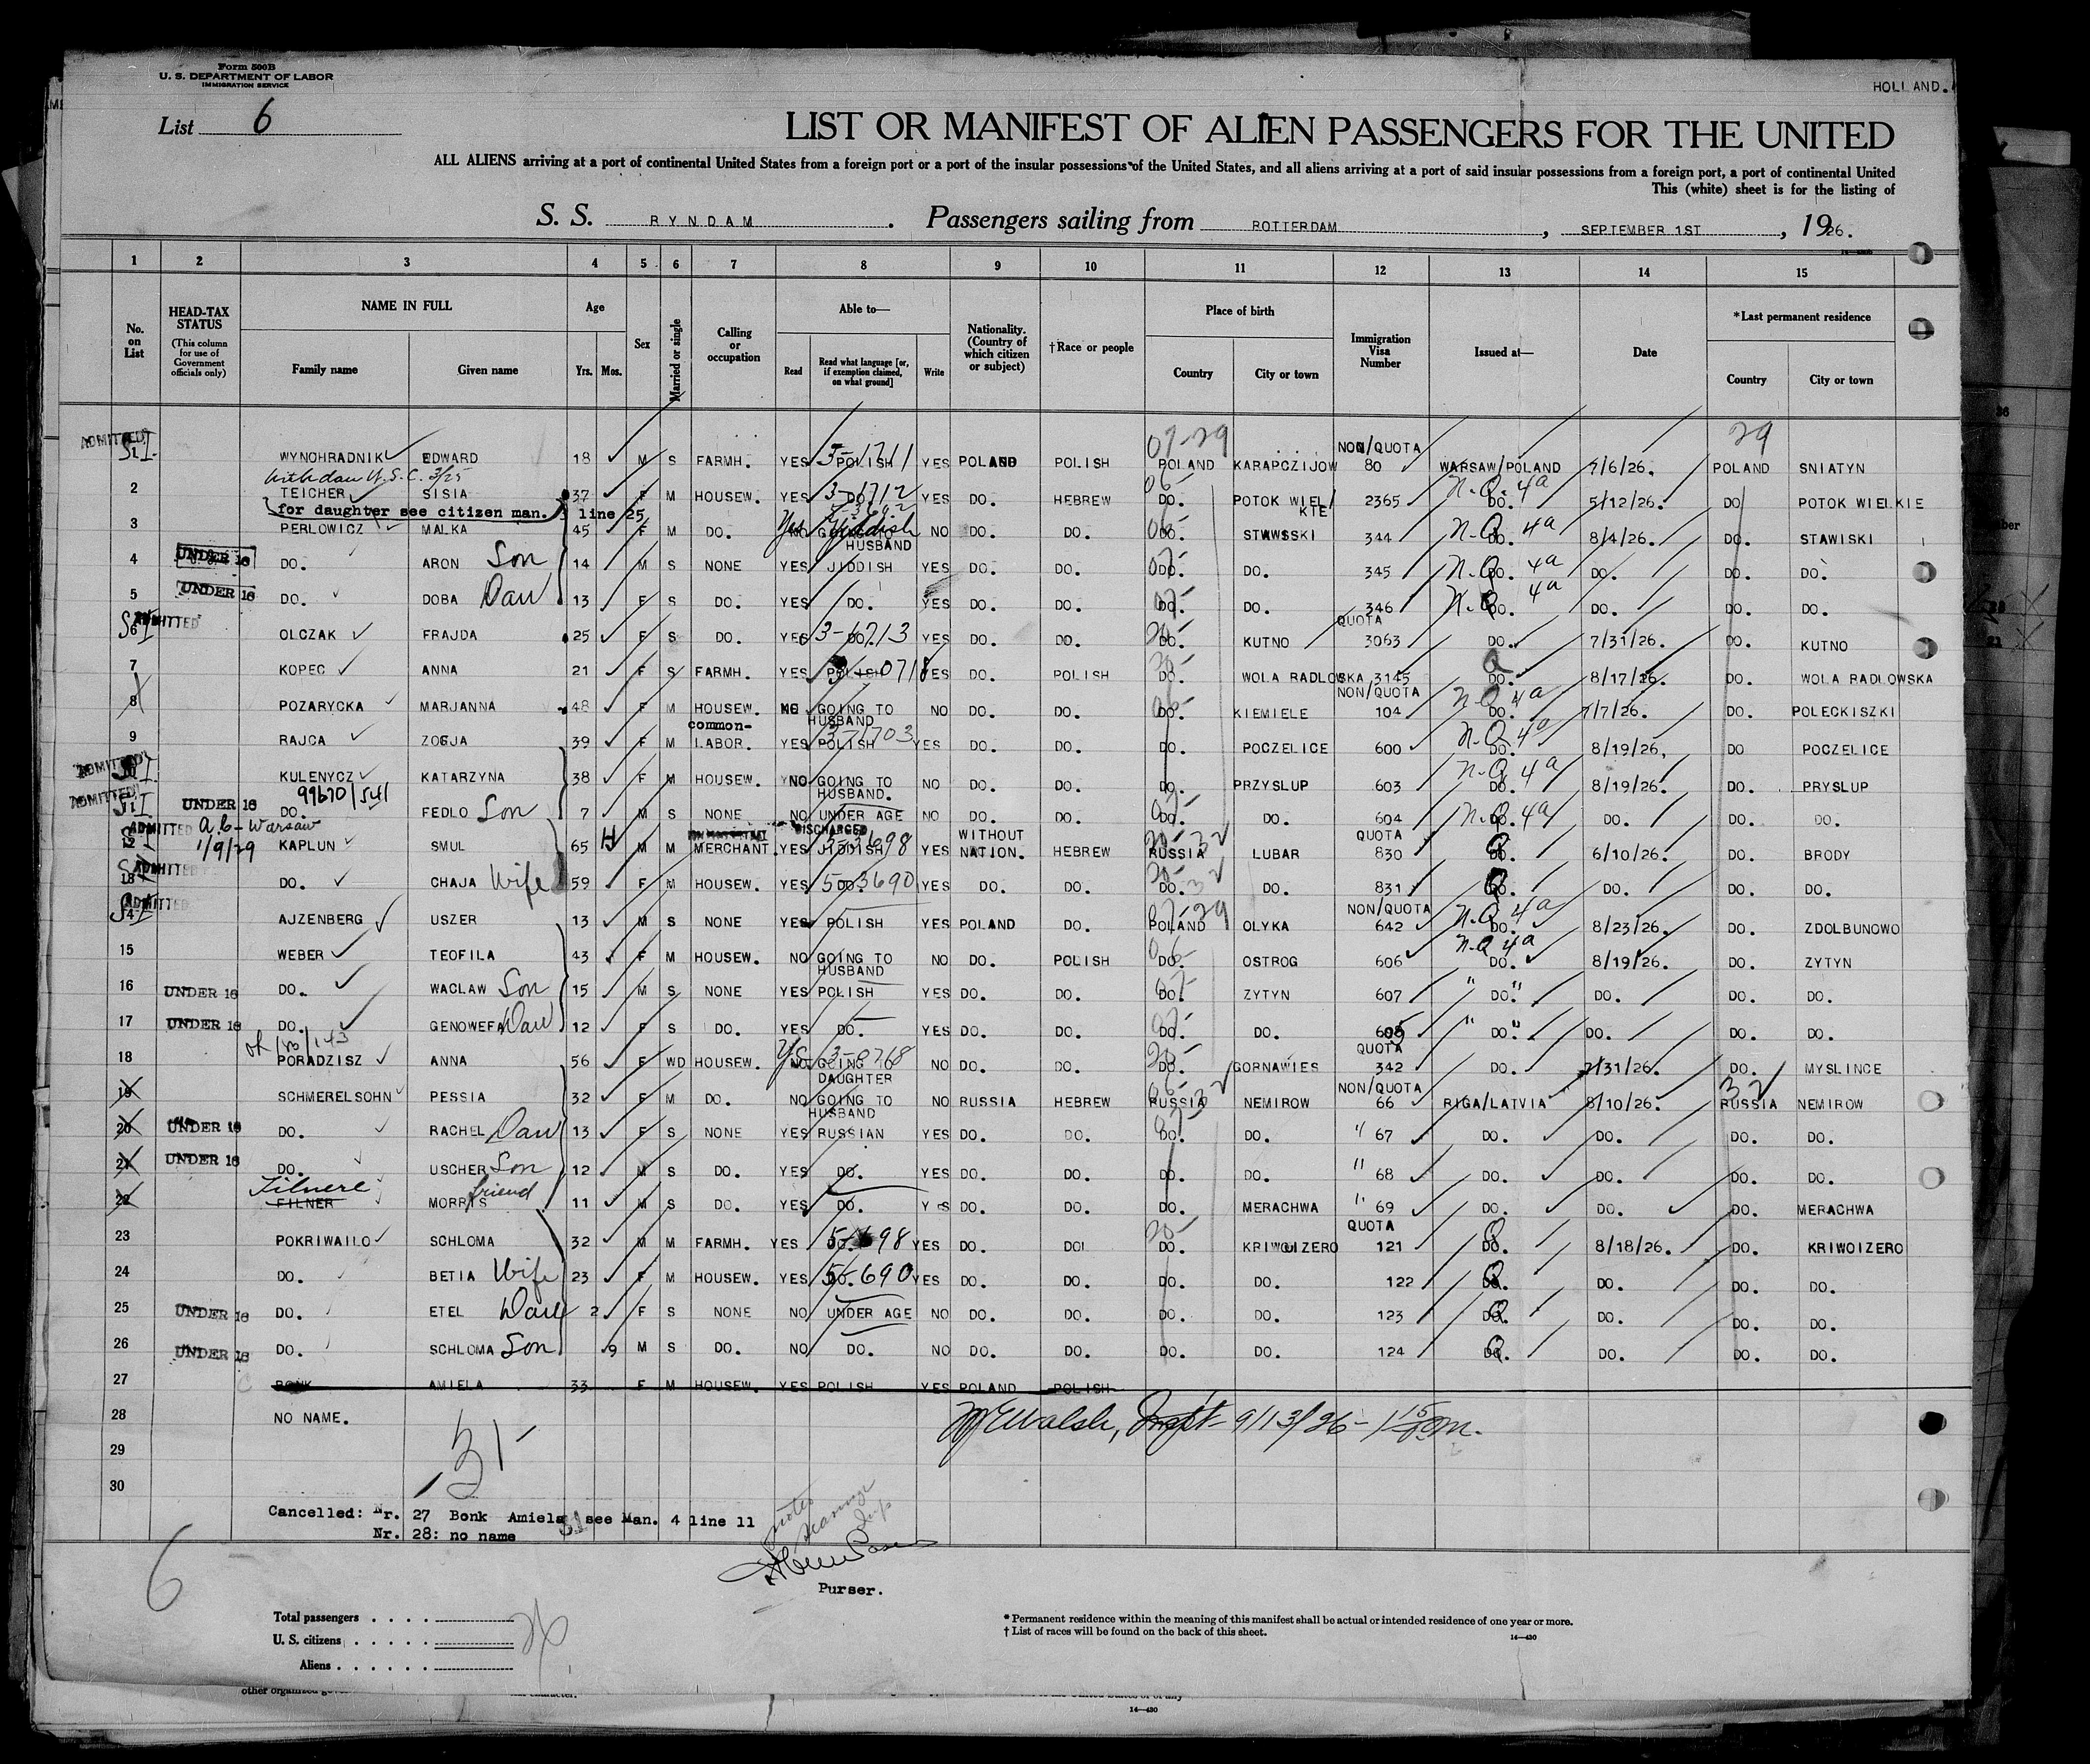 Form 500B
U. S. DEPARTMENT OF LABOR
IMMIGRATION SERVICE
HOLLAND.
List 6
LIST OR MANIFEST OF ALIEN PASSENGERS FOR THE UNITED
ALL ALIENS arriving at a port of continental United States from a foreign port or a port of the insular possessions of the United States, and all aliens arriving at a port of said insular possessions from a foreign port, a port of continental United
This (white) sheet is for the listing of
S. S. RYNDAM. Passengers sailing from ROTTERDAM, SEPTEMBER 1ST, 1926.
1 2 3 4 5 6 7 8 9 10 11 12 13 14 15
No. on List
HEAD-TAX STATUS (This column for use of Government officials only)
NAME IN FULL
Family name Given name
Age
Yrs. Mos.
Sex
Married or single
Calling or occupation
Able to—
Read Read what language [or, if exemption claimed, on what ground] Write
Nationality. (Country of which citizen or subject)
†Race or people
Place of birth
Country City or town
Immigration Visa Number
Issued at—
Date
*Last permanent residence
Country City or town
ADMITTED 07-29 NON/QUOTA 29
S.I. WYNOHRADNIK EDWARD 18 M S FARMH. YES POLISH 3-1711 YES POLAND POLISH POLAND KARAPCZIJOW 80 WARSAW/POLAND 7/6/26. POLAND SNIATYN
2 TEICHER SISIA 37 F M HOUSEW. YES DO. 3-1712 YES DO. HEBREW DO. POTOK WIEL/KIE 2365 N.Q. 4a DO. 5/12/26. DO POTOK WIELKIE
for daughter see citizen man. 3 line 25
3 PERLOWICZ MALKA 45 F M DO. Yes Yiddish GOING TO HUSBAND NO DO. DO. DO. STAWSSKI 344 N.Q. 4a DO. 8/4/26. DO. STAWISKI
4 UNDER 16 DO. ARON Son 14 M S NONE YES JIDDISH YES DO. DO. DO. DO. 345 N.Q. 4a DO. DO. DO. DO.
5 UNDER 16 DO. DOBA Dau 13 F S DO. YES DO. YES DO. DO. DO. DO. 346 N.Q. 4a DO. DO. DO. DO.
ADMITTED QUOTA
S.I. 6 OLCZAK FRAJDA 25 F S DO. YES DO. 3-1713 YES DO. DO. DO. KUTNO 3063 DO. 7/31/26. DO. KUTNO
7 KOPEC ANNA 21 F S FARMH. YES POLISH YES DO. POLISH DO. WOLA RADLOWSKA 3145 Q DO. 8/17/26. DO. WOLA RADLOWSKA
NON/QUOTA
8 POZARYCKA MARJANNA 48 F M HOUSEW. NO GOING TO HUSBAND NO DO. DO. DO. KIEMIELE 104 N.Q. 4a DO. 7/7/26. DO. POLECKISZKI
9 RAJCA ZOFJA 39 F M common-LABOR. YES POLISH 3-1703 YES DO. DO. DO. POCZELICE 600 N.Q. 4a DO. 8/19/26. DO POCZELICE
ADMITTED S.I. KULENYCZ KATARZYNA 38 F M HOUSEW. NO GOING TO HUSBAND. NO DO. DO. DO. PRZYSLUP 603 N.Q. 4a DO. 8/19/26. DO. PRYSLUP
99670/541
ADMITTED S.I. UNDER 16 DO. FEDLO Son 7 M S NONE NO UNDER AGE NO DO. DO. DO. DO. 604 N.Q. 4a DO. DO. DO. DO.
ADMITTED Warsaw 1/9/29 DISCHARGED QUOTA
12 KAPLUN SMUL 65 M M MERCHANT. YES JIDDISH YES WITHOUT NATION. HEBREW RUSSIA LUBAR 830 Q DO. 6/10/26. DO. BRODY
ADMITTED 13 DO. CHAJA Wife 59 F M HOUSEW. YES DO. 5-3690 YES DO. DO. DO. DO. 831 Q DO. DO. DO. DO.
ADMITTED NON/QUOTA
14 AJZENBERG USZER 13 M S NONE YES POLISH YES POLAND DO. POLAND OLYKA 642 N.Q. 4a DO. 8/23/26. DO. ZDOLBUNOWO
15 WEBER TEOFILA 43 F M HOUSEW. NO GOING TO HUSBAND NO DO. POLISH DO. OSTROG 606 N.Q. 4a DO. 8/19/26. DO. ZYTYN
16 UNDER 16 DO. WACLAW Son 15 M S NONE YES POLISH YES DO. DO. DO. ZYTYN 607 " DO. " DO. DO. DO.
17 UNDER 16 DO. GENOWEFA Dau 12 F S DO. YES DO. YES DO. DO. DO. DO. 605 " DO. " DO. DO. DO.
QUOTA
18 PORADZISZ ANNA 56 F WD HOUSEW. Yes NO GOING TO DAUGHTER 3-0768 NO DO. DO. DO. GORNAWIES 342 DO. 7/31/26. DO. MYSLINCE
NON/QUOTA
19 SCHMERELSOHN PESSIA 32 F M DO. NO GOING TO HUSBAND NO RUSSIA HEBREW RUSSIA NEMIROW 66 RIGA/LATVIA 8/10/26. RUSSIA NEMIROW
20 UNDER 16 DO. RACHEL Dau 13 F S NONE YES RUSSIAN YES DO. DO. DO. DO. " 67 DO. DO. DO. DO.
21 UNDER 16 DO. USCHER Son 12 M S DO. YES DO. YES DO. DO. DO. DO. " 68 DO. DO. DO. DO.
22 Filnere FILNER MORRIS friend 11 M S DO. YES DO. YES DO. DO. DO. MERACHWA " 69 DO. DO. DO. MERACHWA
QUOTA
23 POKRIWAILO SCHLOMA 32 M M FARMH. YES DO. YES DO. DO. DO. KRIWOIZERO 121 Q DO. 8/18/26. DO. KRIWOIZERO
24 DO. BETIA Wife 23 F M HOUSEW. YES DO. YES DO. DO. DO. DO. 122 Q DO. DO. DO. DO.
25 UNDER 16 DO. ETEL Dau 2 F S NONE NO UNDER AGE NO DO. DO. DO. DO. 123 Q DO. DO. DO. DO.
26 UNDER 16 DO. SCHLOMA Son 9 M S DO. NO DO. NO DO. DO. DO. DO. 124 Q DO. DO. DO. DO.
27 BONK AMIELA 33 F M HOUSEW. YES POLISH YES POLAND POLISH
28 NO NAME.
Walsh, Inspt 9/13/26 - 1 15 P.M.
29
30
31
Cancelled: Nr. 27 Bonk Amiela see Man. 4 line 11
Nr. 28: no name
6
Purser.
Total passengers
U. S. citizens
Aliens
26
* Permanent residence within the meaning of this manifest shall be actual or intended residence of one year or more.
† List of races will be found on the back of this sheet.
14—430
14—430